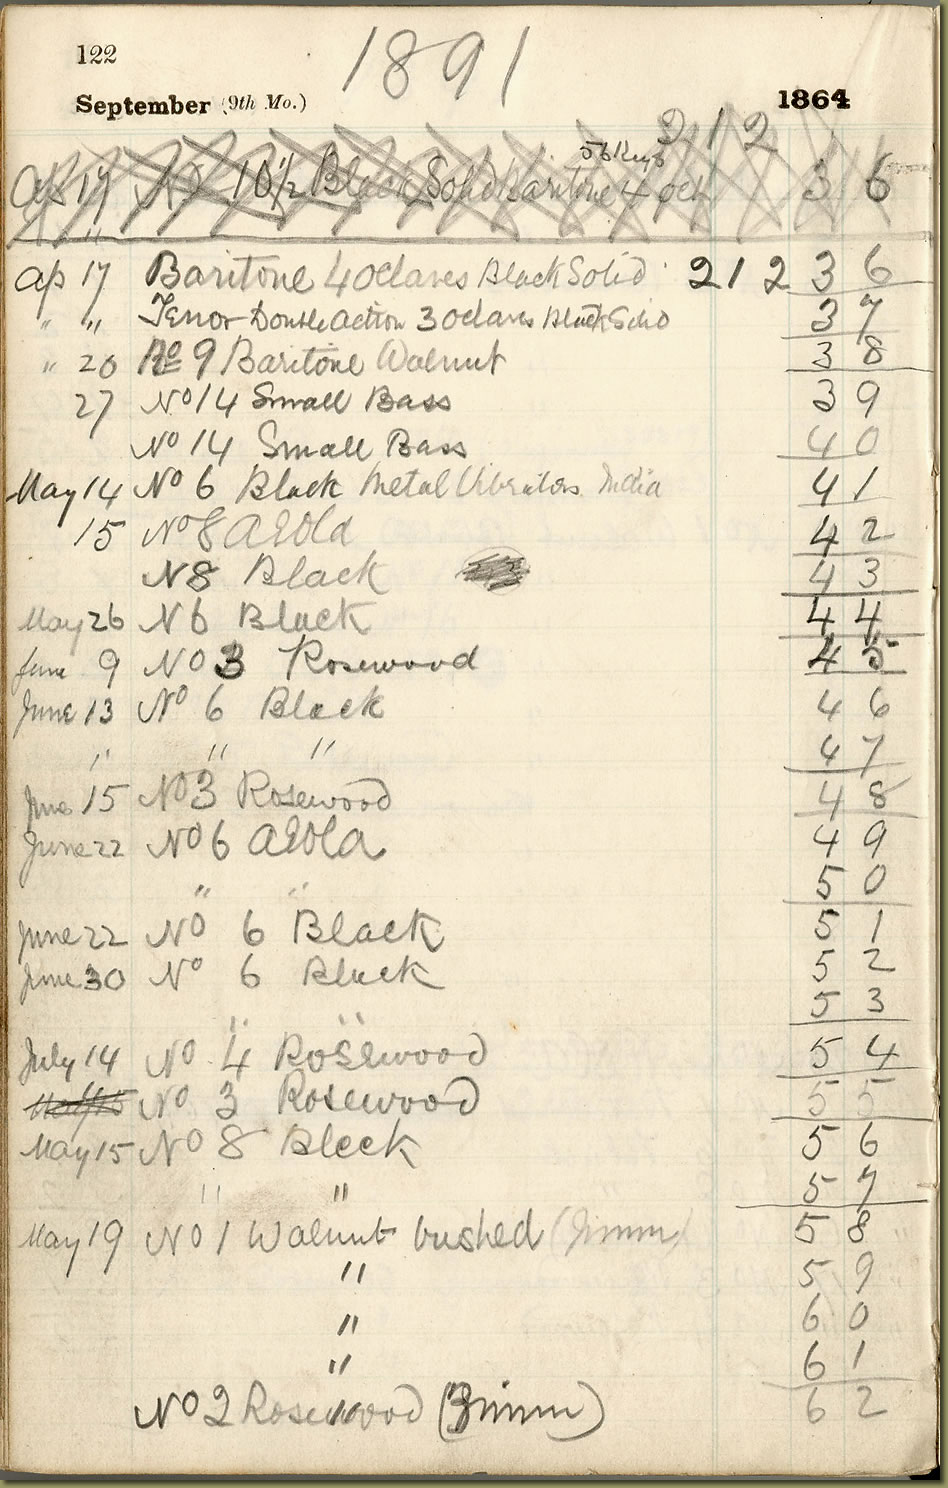 122
1891
September (9th Mo.)
1864
56 Keys 2 1 2
Ap 17 No 10 1/2 Black Solid Baritone 4 oct 3 6
"
Ap 17 Baritone 4 octaves Black Solid 2 1 2 3 6
" " Tenor Double action 3 octaves Black Solid 3 7
" 20 No 9 Baritone Walnut 3 8
27 No 14 Small Bass 3 9
No 14 Small Bass 4 0
May 14 No 6 Black Metal Vibrators India 4 1
15 No 8 AEola 4 2
N 8 Black 4 3
May 26 N 6 Black 4 4
June 9 No 3 Rosewood 4 5
June 13 No 6 Black 4 6
" " " 4 7
June 15 No 3 Rosewood 4 8
June 22 No 6 AEola 4 9
" " 5 0
June 22 No 6 Black 5 1
June 30 No 6 Black 5 2
" " 5 3
July 14 No 4 Rosewood 5 4
No 3 Rosewood 5 5
May 15 No 8 Black 5 6
" " 5 7
May 19 No 1 Walnut bushed (Zimm) 5 8
" 5 9
" 6 0
" 6 1
No 2 Rosewood (Zimm) 6 2